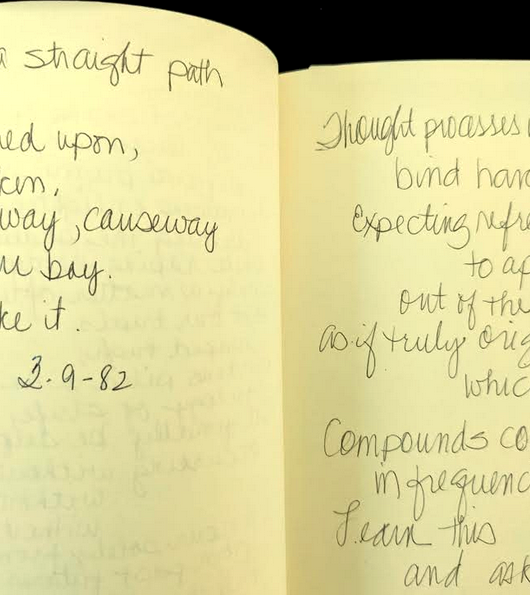 a straight path
ned upon,
ken,
way, causeway
m bay.
ke it.
3-9-82
Thought processes
bind han
Expecting refre
to ap
out of the
as if truly orig
whic
Compounds co
in frequenc
Learn this
and ask